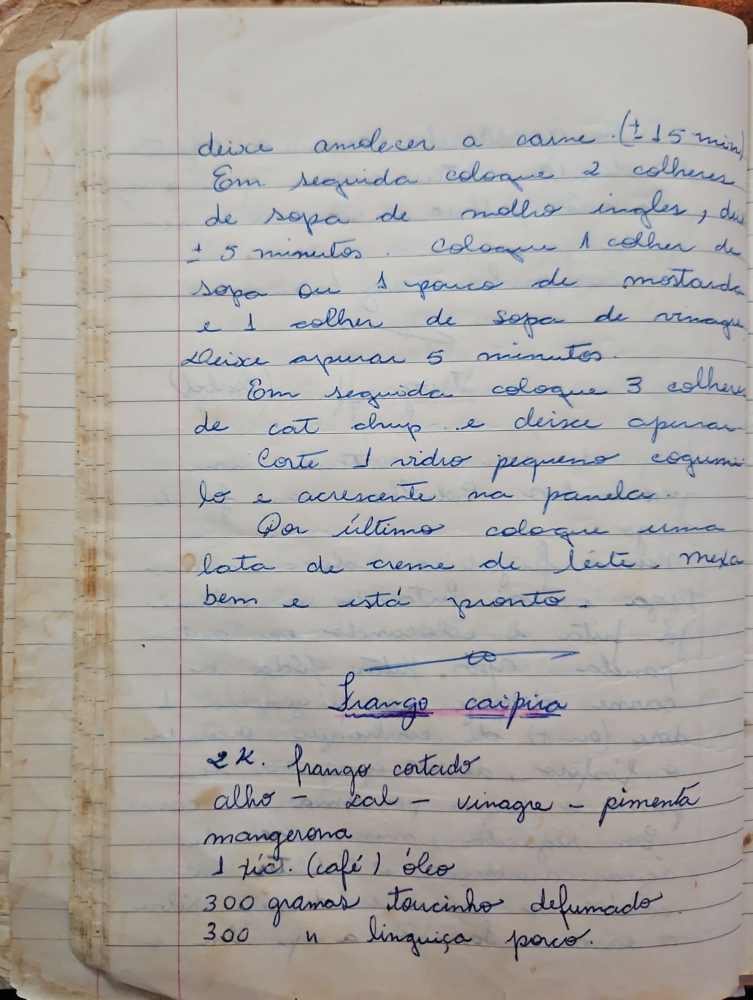 deixe amolecer a carne. (± 15 min)
Em seguida coloque 2 colheres
de sopa de molho ingles, dei
± 5 minutos. Coloque 1 colher de
sopa ou 1 pouco de mostarda
e 1 colher de sopa de vinagre
Deixe apurar 5 minutos.
Em seguida coloque 3 colheres
de cat chup e deixe apurar
Corte 1 vidro pequeno cogume
lo e acrescente na panela.
Por último coloque uma
lata de creme de leite. mexa
bem e está pronto.
Frango caipira
2 K. frango cortado
alho - sal - vinagre - pimenta
mangerona
1 xíc. (café) óleo
300 gramas toucinho defumado
300 " linguiça porco.